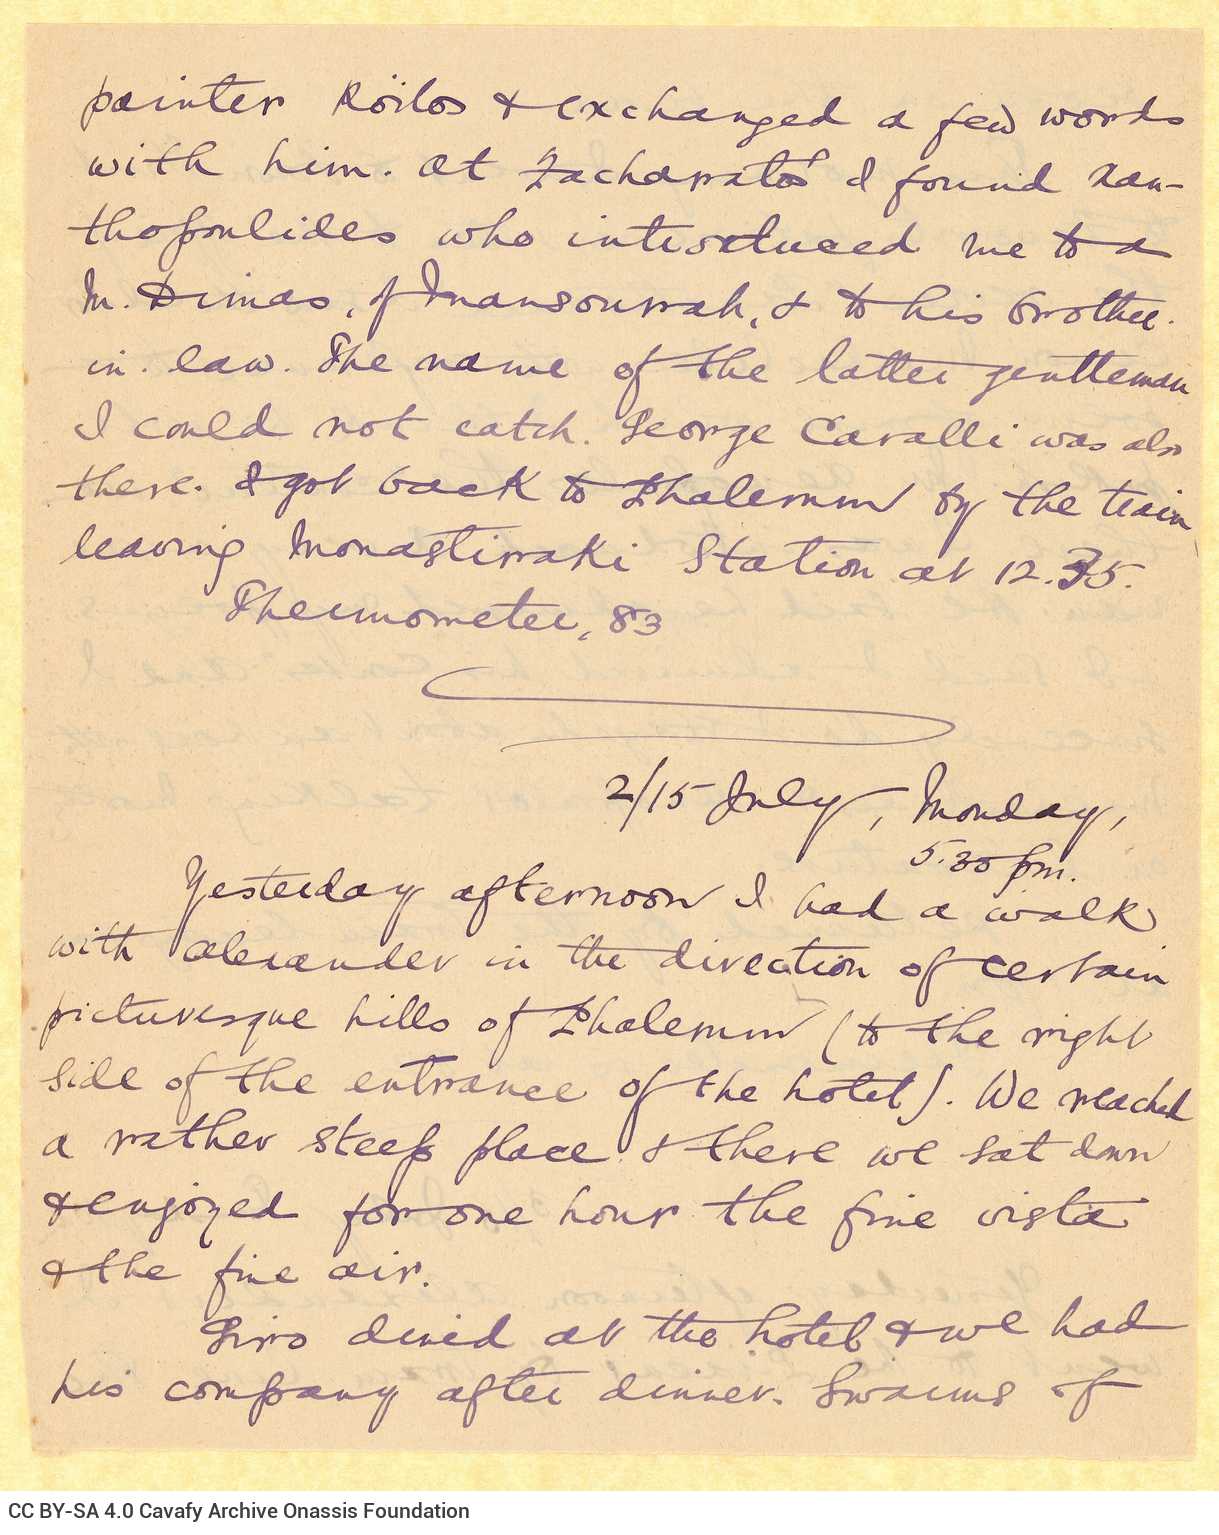 painter Roilos & exchanged a few words
with him. At Zacharrato's I found Xan-
thopoulides who introduced me to a
M. Dimas, of Mansourrah, & to his brother.
in. law. The name of the latter gentleman
I could not catch. George Cavalli was also
there. I got back to Phalerum by the train
leaving Monastirraki Station at 12.35.
Thermometer, 83
2/15 July, Monday,
5.30 pm.
Yesterday afternoon I had a walk
with Alexander in the direction of certain
picturesque hills of Phalerum (to the right
side of the entrance of the hotel). We reached
a rather steep place & there we sat down
& enjoyed for one hour the fine vista
& the fine air.
dined at the hotel & we had
his company after dinner. Swarms of
CC BY-SA 4.0 Cavafy Archive Onassis Foundation